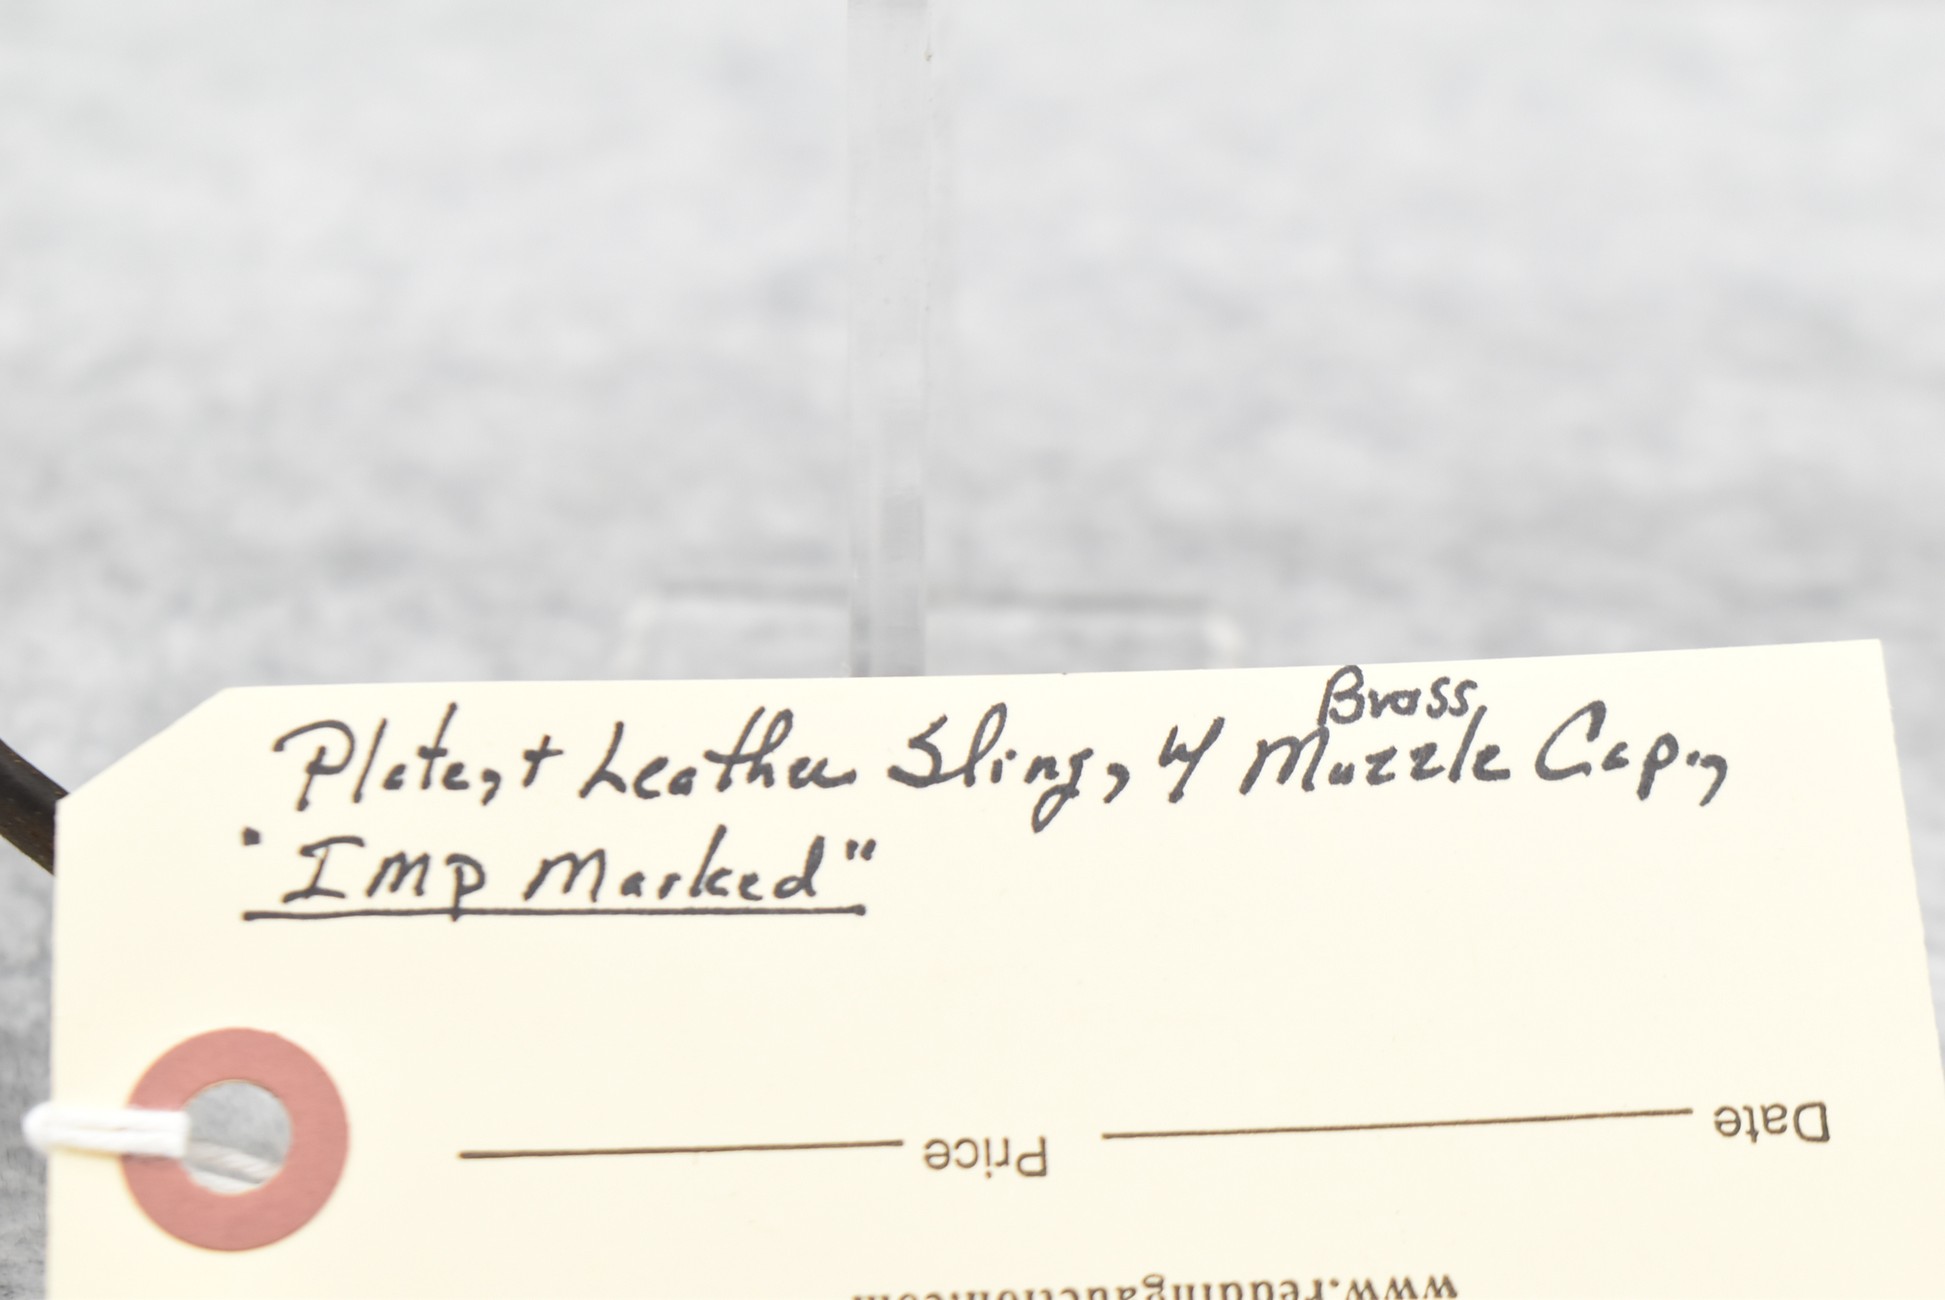 Brass
Plate, + Leather Sling, w/ Muzzle Cap.,
"IMP Marked"
Price
Date
www.reddingauction.com